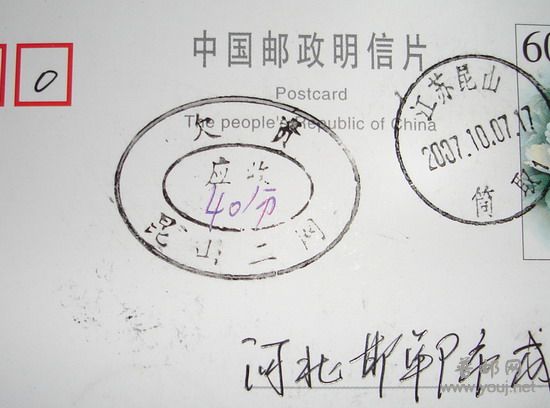 0
中国邮政明信片
Postcard
The people's Republic of China
60
江苏昆山
2007.10.07.17
筒取1
欠资
应收
40分
昆山二网
河北邯郸市成
普邮网
www.youj.net